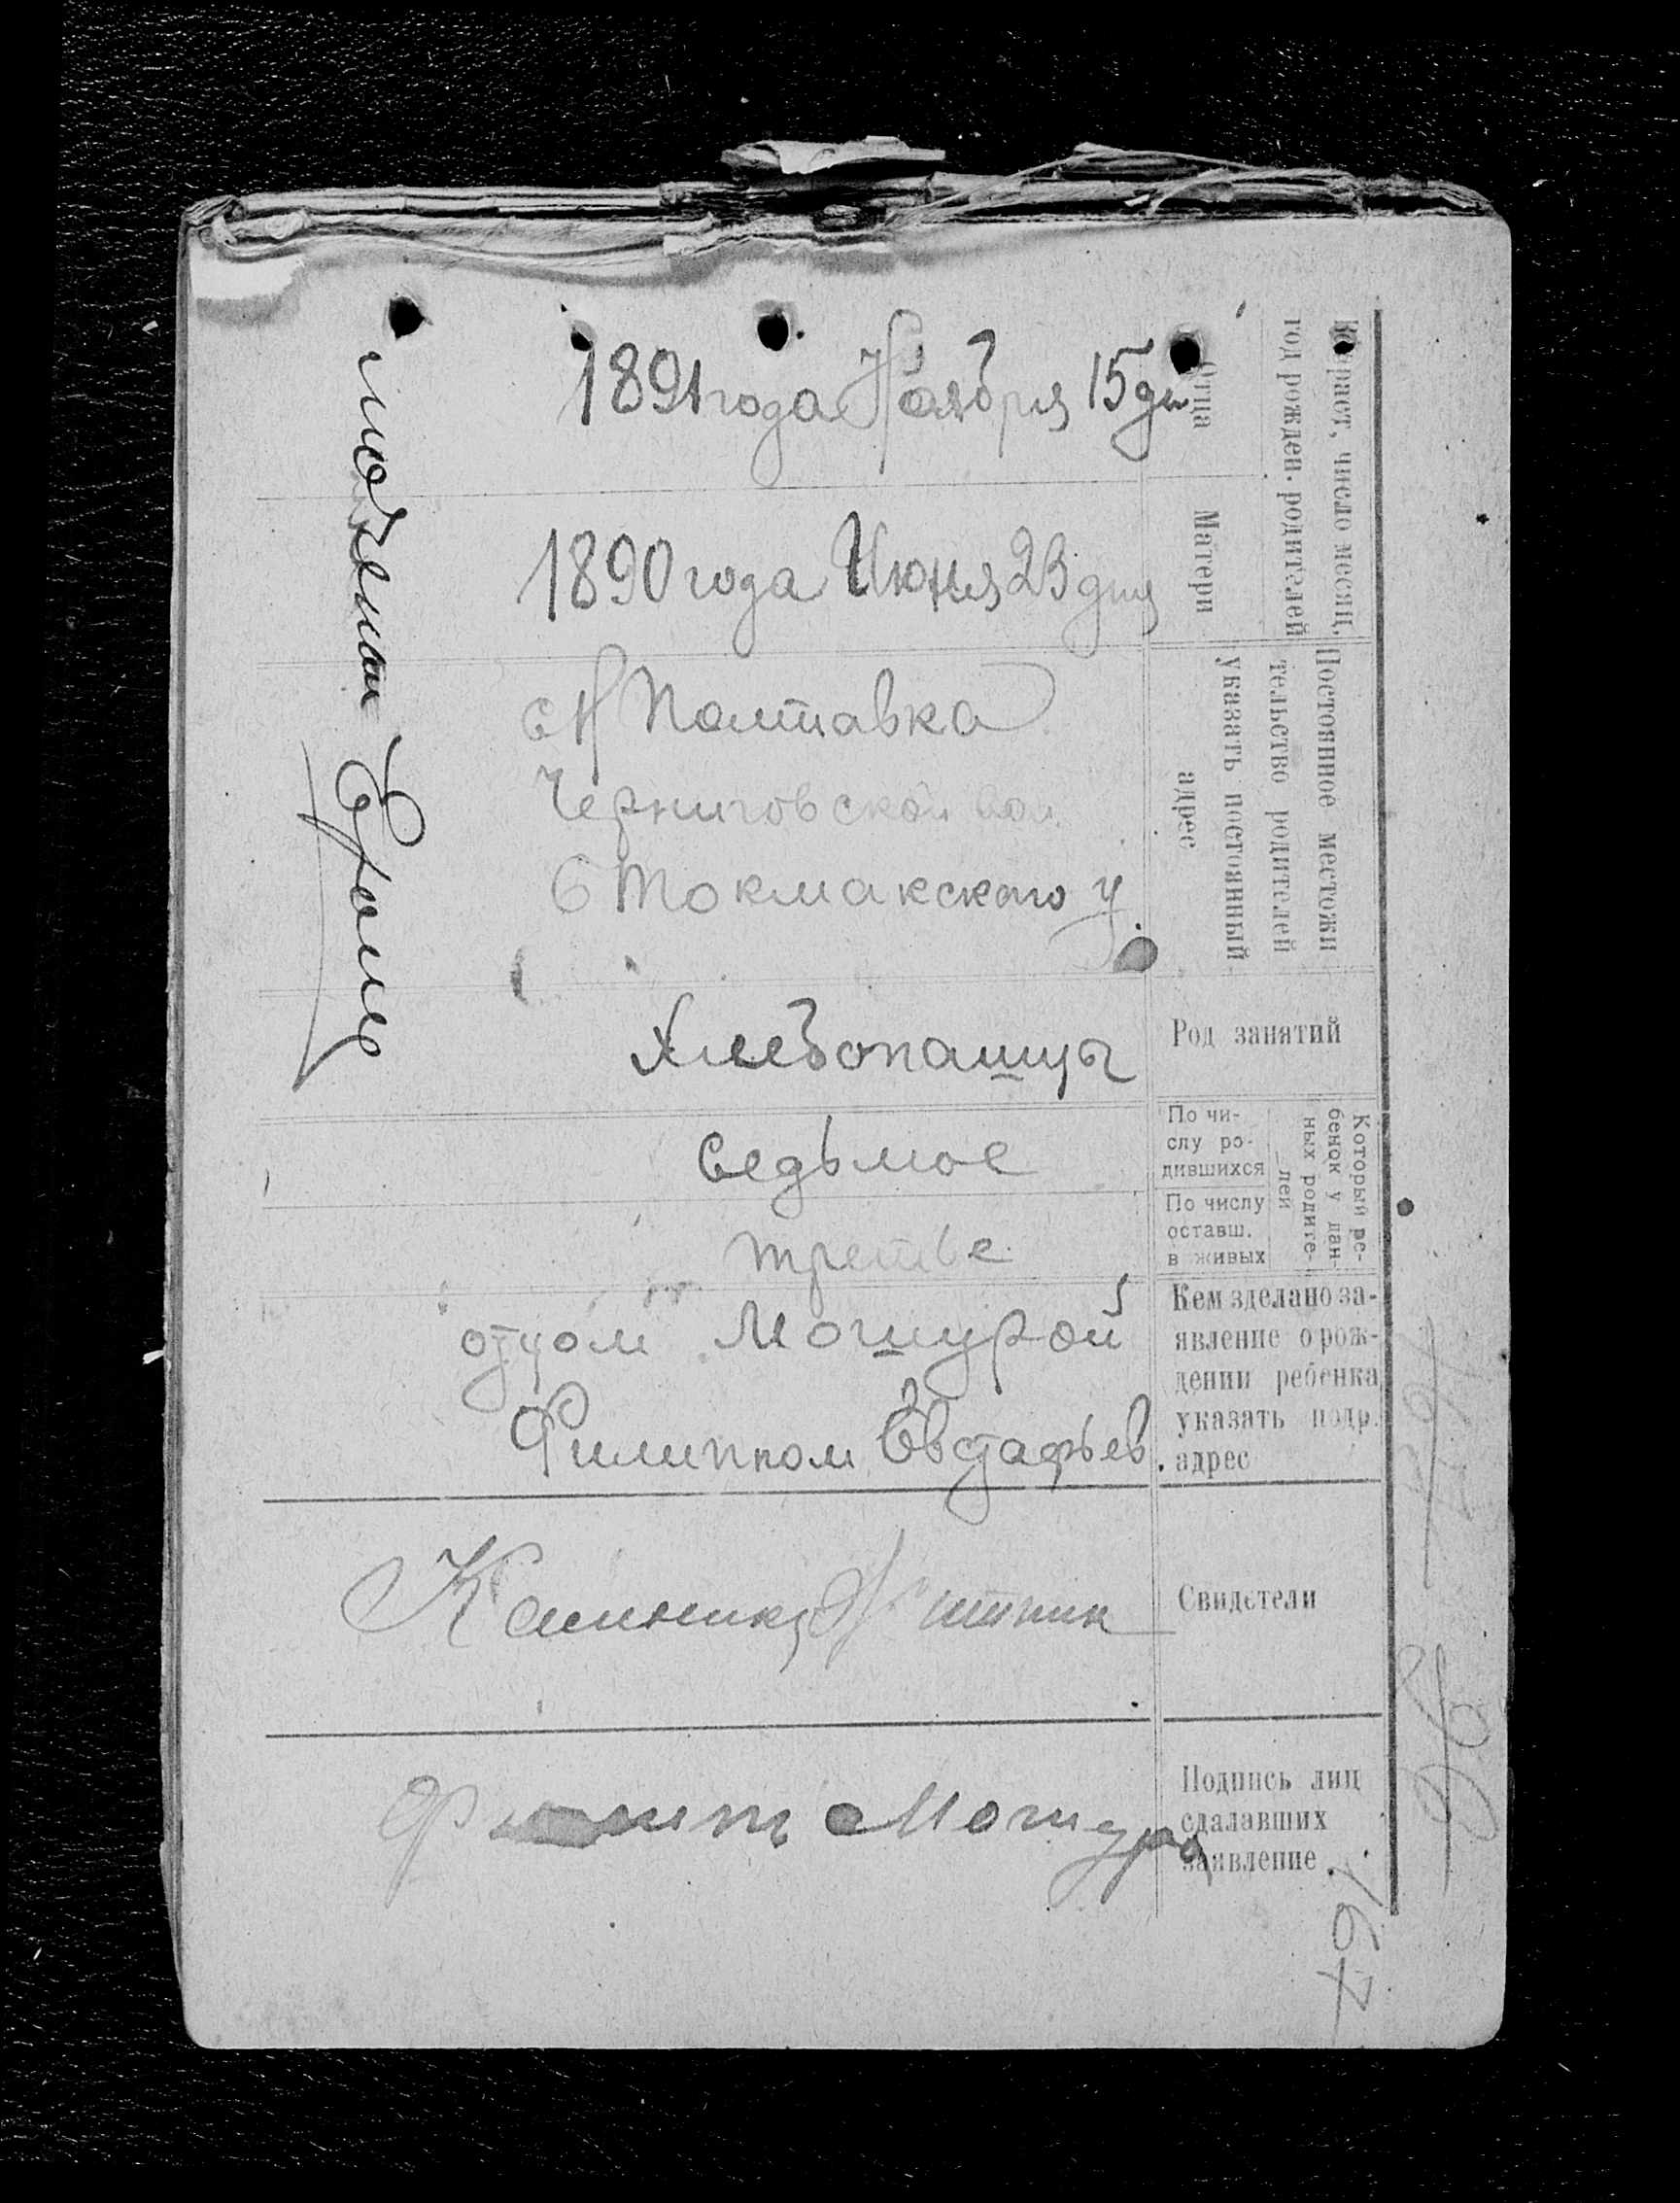 Возраст, число месяц,
год рожден. родителей
Отца
1891 года Ноября 15 дн
Матери
1890 года Июня 23 дня
Постоянное местожи
тельство родителей
указать постоянный
адрес
с Н Полтавка
Черниговской вол.
Б Токмакского у.
Род занятий
Хлебопашцы
Который ре-
бенок у дан-
ных родите-
лей
По чи-
слу ро-
дившихся
Седьмое
По числу
оставш.
в живых
третье
Кем зделано за-
явление о рож-
дении ребенка
указать подр.
адрес
отцом Мошурой
Филиппом Евстафьев.
Свидетели
Калиник
Подпись лиц
сдалавших
заявление
Филипп Мошура
167